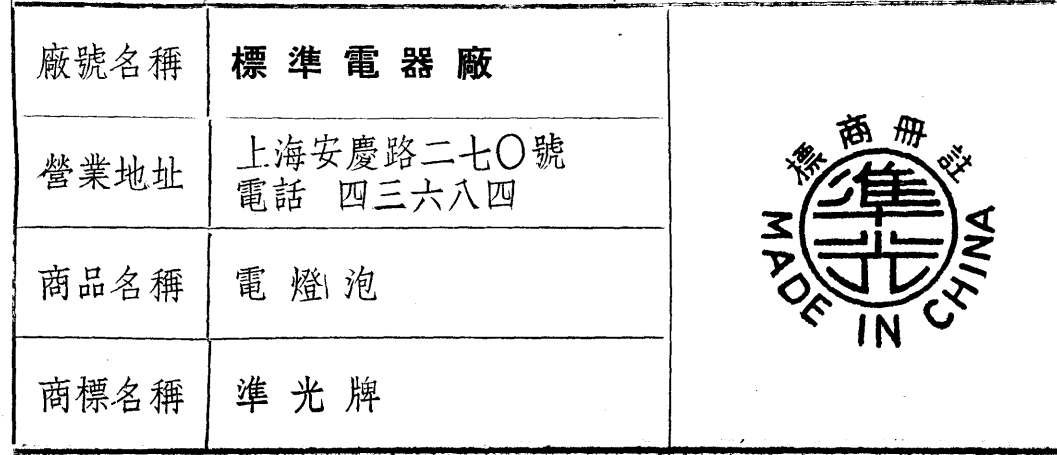 廠號名稱 標準電器廠
營業地址 上海安慶路二七〇號
電話 四三六八四
商品名稱 電燈泡
商標名稱 準光牌
標商冊註
準光
MADE IN CHINA